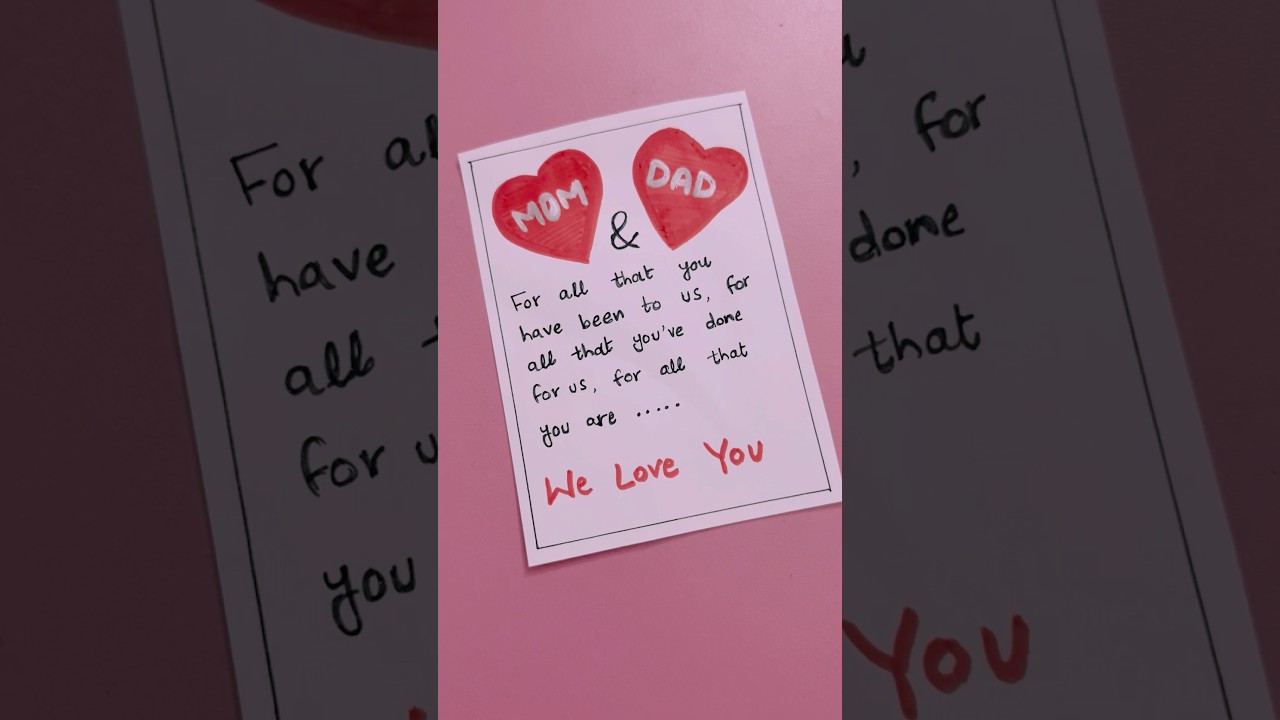 MOM
DAD
&
For all that you
have been to us, for
all that you've done
for us, for all that
you are .....
We Love You